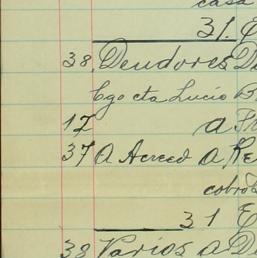 casa
31. E
38. Deudores D
Cgo cta Lucio B
17 a Fr
37 A Acreed A. Re
cobro
31 E
38 Varios a De